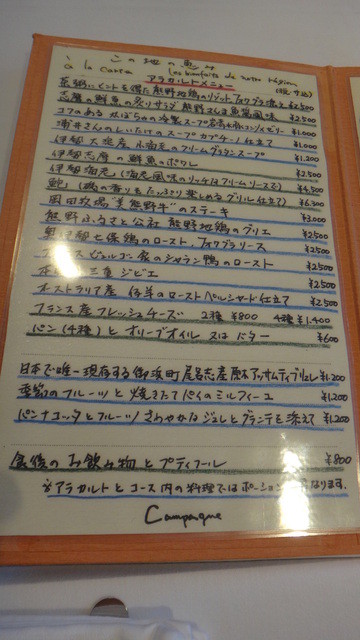 この地の恵み
à la carte Les bienfaits de notre région
アラカルトメニュー (税サ込)
熊野地鶏のリゾット フォワグラ添え ¥2500
志摩の鮮魚の炙りサラダ 熊野さんま魚醤風味 ¥2500
の冷製スープ コンソメゼリー ¥1000
浦井さんのしいたけのスープ カプチーノ仕立て ¥1,000
伊勢 クリームグラタンスープ ¥1,200
伊勢志摩の鮮魚のポワレ ¥2500
伊勢海老 (海老風味のリッチなクリームソースで) ¥4,500
鮑 (磯の香りをたっぷり楽しめるグリル仕立て) ¥6,300
岡田牧場"美熊野牛"のステーキ ¥3,000
熊野ふるさと公社 熊野地鶏のグリエ ¥2500
奥伊勢七保鶏のロースト、フォワグラソース ¥2500
フランス ビュルゴー家のシャラン鴨のロースト ¥2500
三重 ジビエ ¥2500
オーストラリア産 仔羊のロースト ペルシャード仕立て ¥2500
フランス産フレッシュチーズ 2種 ¥800 4種 ¥1,400
パン(4種)と オリーブオイル 又は バター ¥600
日本で唯一現存する御浜町尾呂志産原木アッサムティブリュレ ¥1,200
季節のフルーツと焼きたてパイのミルフィーユ ¥1,200
パンナコッタとフルーツ さわやかなジュレとグラニテを添えて ¥1,200
食後のお飲み物とプティフール ¥800
※アラカルトとコース内の料理ではポーションが異なります。
Campagne